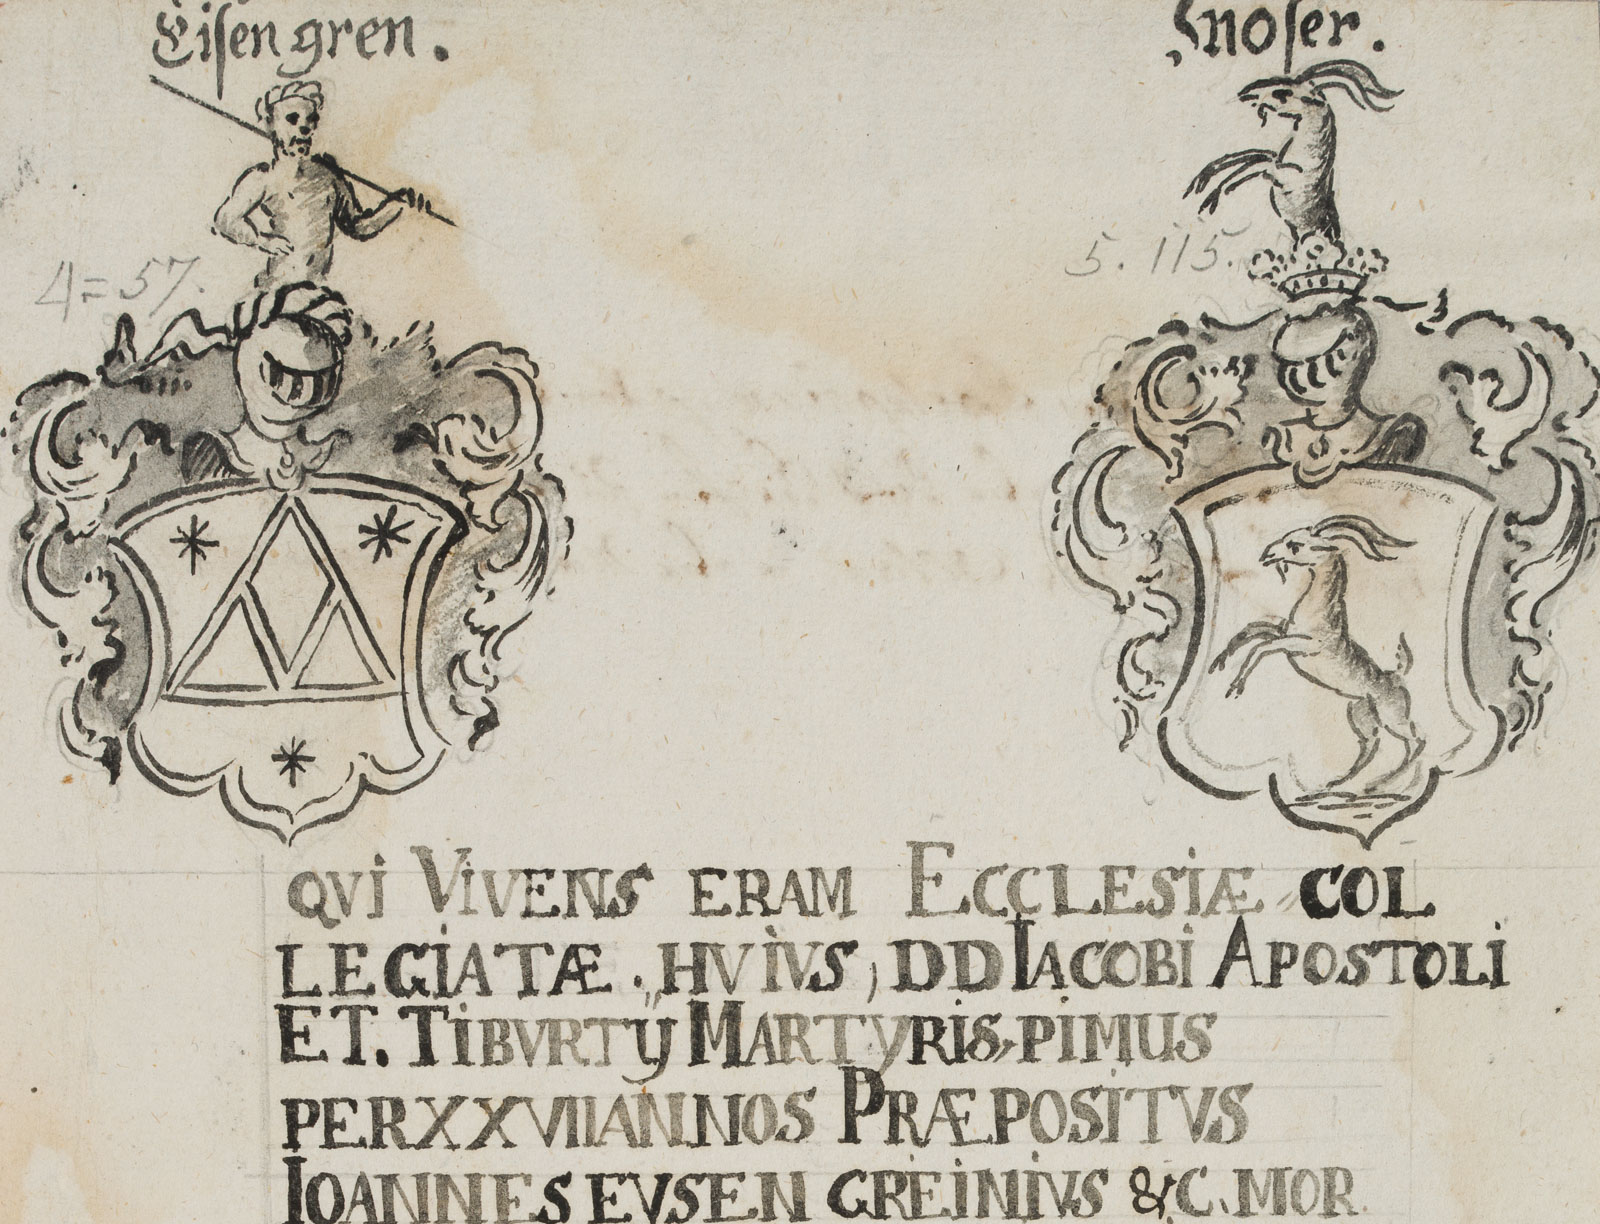 Eisengren.
Knoser.
4=57.
5.115.
QVI VIVENS ERAM ECCLESIÆ COL
LEGIATÆ. HVIVS, DD IACOBI APOSTOLI
ET. TIBVRTY MARTYRIS, PIMUS
PER XXVII ANNOS PRÆPOSITVS
IOANNES EVSEN GREINIVS &C. MOR